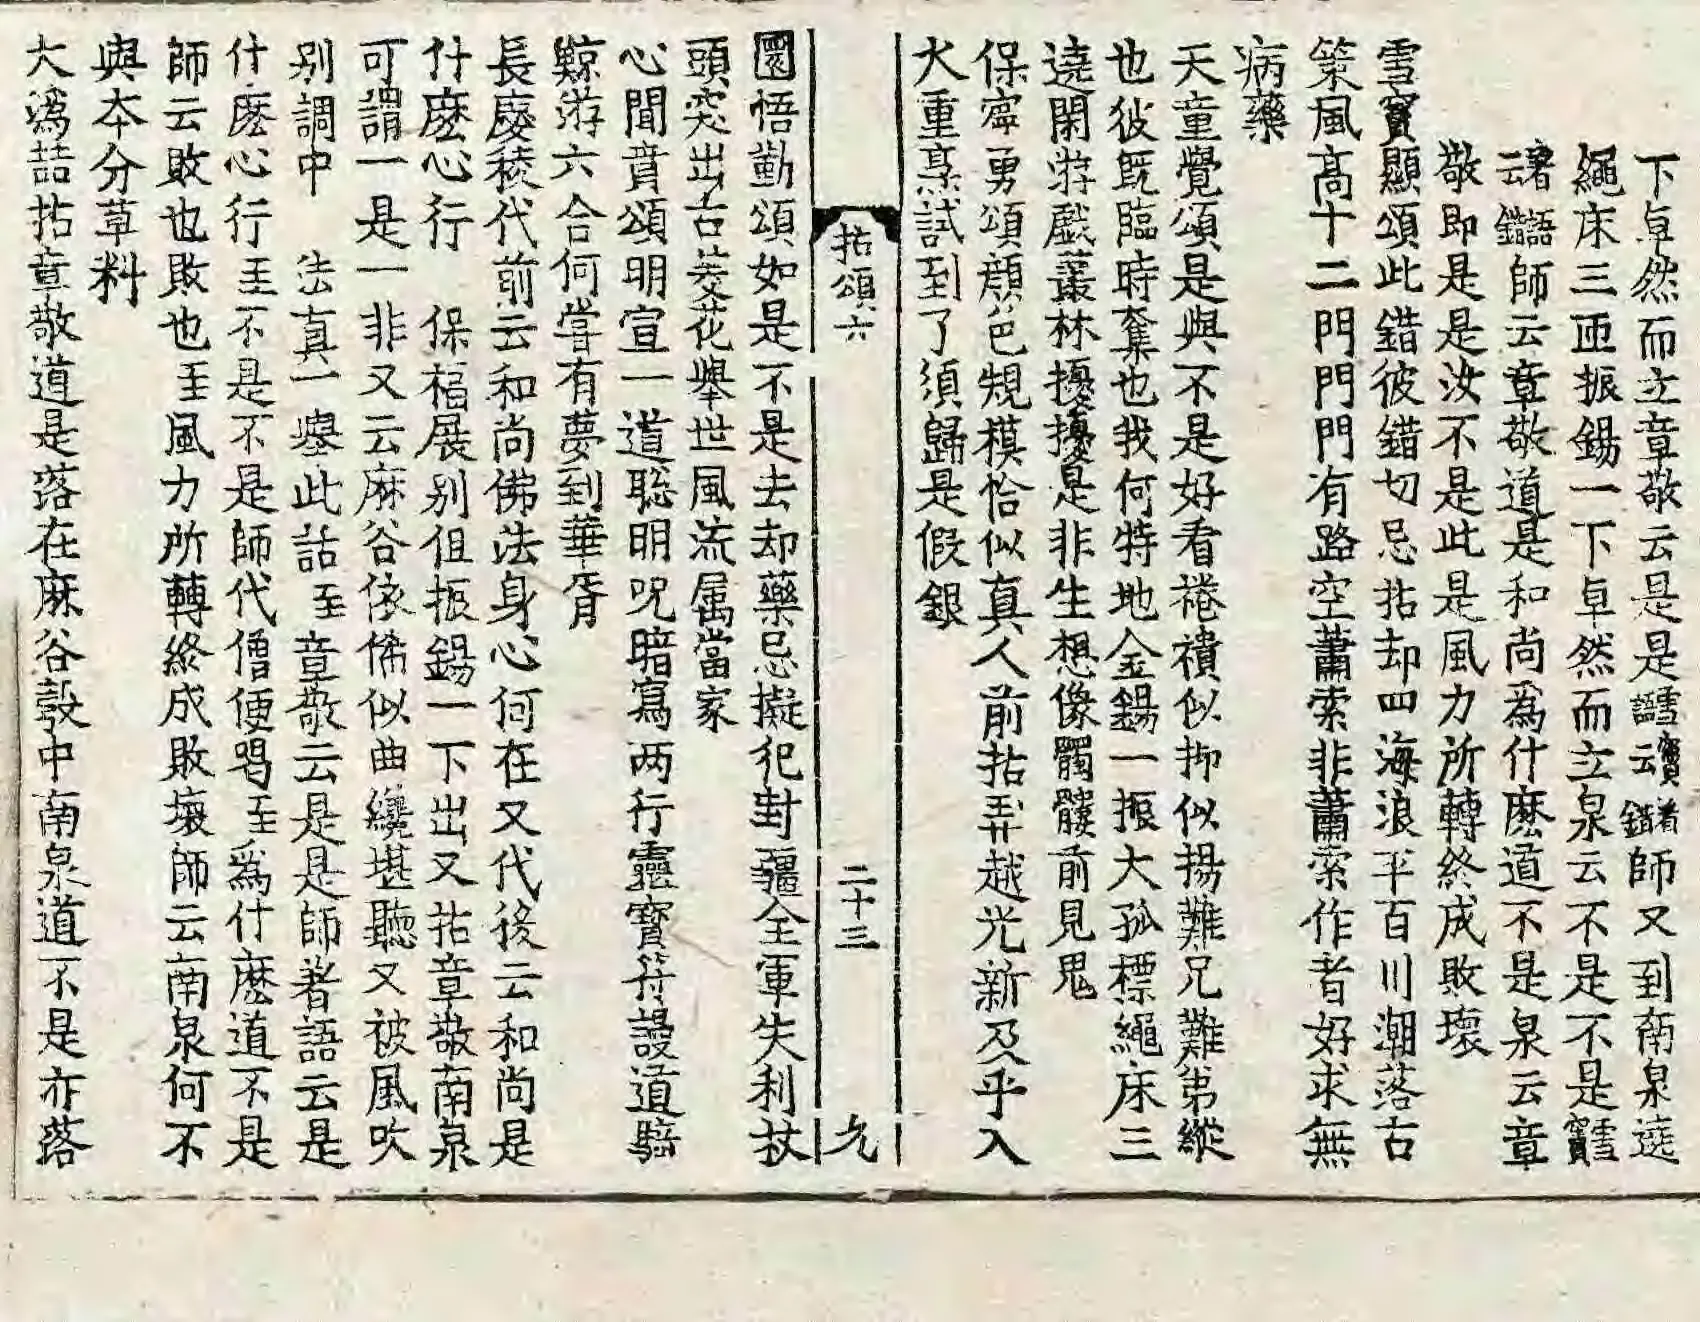 下卓然而立章敬云是是雪竇著語云錯師又到南泉遶
繩床三匝振錫一下卓然而立泉云不是不是雪竇
著語云錯師云章敬道是和尚爲什麽道不是泉云章
敬即是是汝不是此是風力所轉終成敗壞
雪竇顯頌此錯彼錯切忌拈却四海浪平百川潮落古
策風高十二門門門有路空蕭索非蕭索作者好求無
病藥
天童覺頌是與不是好看棬䙡似抑似揚難兄難弟縱
也彼旣臨時奪也我何特地金錫一振大孤標繩床三
遶閑游戲叢林擾擾是非生想像髑髏前見鬼
保寧勇頌顔色規模恰似真人前拈弄越光新及乎入
火重烹試到了須歸是假銀
拈頌六 二十三 九
圜悟勤頌如是不是去却藥忌擬犯封疆全軍失利杖
頭突出古菱花擧世風流属當家
心聞賁頌明宣一道聡明呪暗寫两行靈寶符謾道騎
鯨游六合何甞有夢到華胥
長慶稜代前云和尚佛法身心何在又代後云和尚是
什麽心行 保福展别但振錫一下出又拈章敬南泉
可謂一是一非又云麻谷依俙似曲纔堪聽又被風吹
别調中 法真一擧此話至章敬云是是師著語云是
什麽心行至不是不是師代僧便喝至爲什麽道不是
師云敗也敗也至風力所轉終成敗壞師云南泉何不
與本分草料
大潙喆拈章敬道是落在麻谷彀中南泉道不是亦落